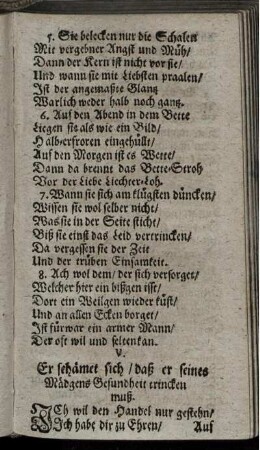 5. Sie belecken nur die Schalen
Mit vergebner Angst und Müh/
Dann der Kern ist nicht vor sie/
Und wann sie mit Liebsten praalen/
Ist der angemaßte Glantz
Warlich weder halb noch gantz.
6. Auf den Abend in dem Bette
Liegen sie als wie ein Bild/
Halb-erfroren eingehüllt/
Auf den Morgen ist es Wette/
Dann da brennt das Bette-Stroh
Vor der Liebe Liechter-Loh.
7. Wann sie sich am klügsten düncken/
Wissen sie wol selber nicht/
Was sie in der Seite sticht/
Biß sie einst das Leid vertrincken/
Da vergessen sie der Zeit
Und der trüben Einsamkeit.
8. Ach wol dem/ der sich versorget/
Welcher hier ein bißgen isst/
Dort ein Weilgen wieder küst/
Und an allen Ecken borget/
Ist fürwar ein armer Mann/
Der oft wil und selten kan.
V.
Er schämet sich/ daß er seines
Mädgens Gesundheit trincken
muß.
ICh wil den Handel nur gestehn/
Ich habe dir zu Ehren/
Auf